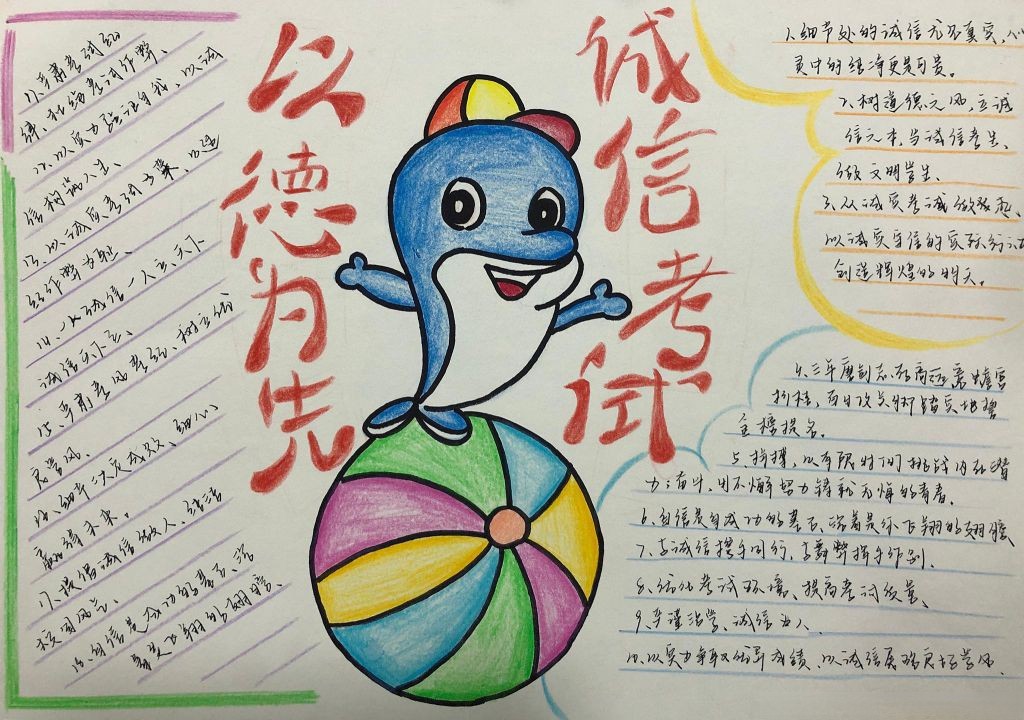 以德为先
诚信考试
11、严肃考试纪
律，杜绝考试作弊。
12、以实力验证自我，以诚
信构筑人生。
以诚实考试为荣，以违
纪作弊为耻。
14、一人诚信一人立，天下
诚信天下立。
15、严肃考风考纪，树立优
良学风。
16、细节决定成败，细心
赢得未来。
17、提倡诚信做人，清洁
校园风气。
18、自信是成功的基石，
飞翔的翅膀。
1、细节处的诚信尤显真实，心
灵中的纯净更是可贵。
2、树道德之风，立诚
信之本，当诚信考生，
做文明学生、
3、从诚实考试做起，
以诚实守信的实际行
创造辉煌的明天。
4、三年磨剑志存高远蟾宫
折桂，百日攻关脚踏实地
金榜提名。
5、拼搏，以有限时间挑战内在潜
力；奋斗，用不懈努力铸就无悔的青春。
6、自信是自成功的基石，沉着是你飞翔的翅膀
7、与诚信携手同行，与舞弊挥手作别。
8、优化考试环境、提高考试质量、
9、严谨治学、诚信为人、
10、以实力争取优异成绩、以诚信展现良好学风